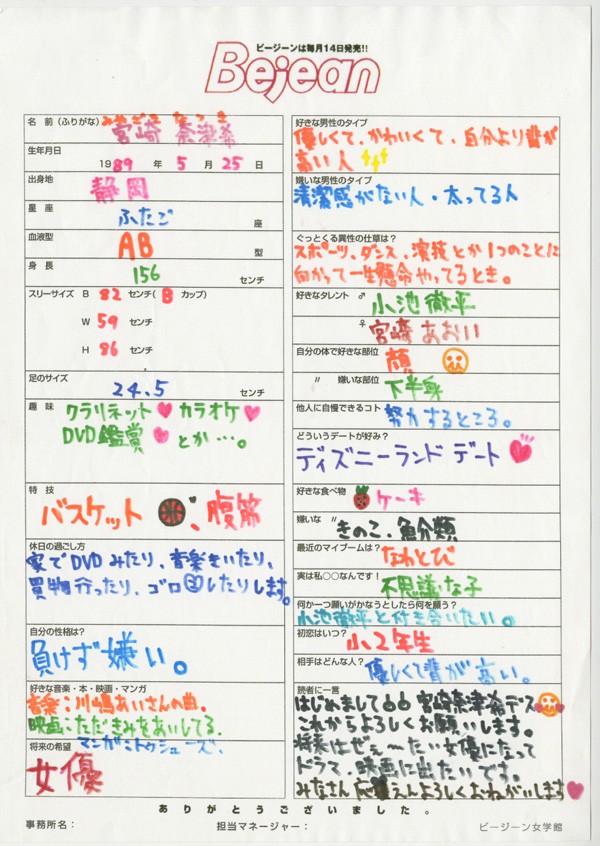 ビージーンは毎月14日発売!!
Bejean
名 前 (ふりがな) みやざき なつき
宮崎 奈津希
生年月日
1989年 5月 25日
出身地
静岡
星 座
ふたご 座
血液型
AB 型
身 長
156 センチ
スリーサイズ B 82 センチ( B カップ)
W 59 センチ
H 86 センチ
足のサイズ
24.5 センチ
趣 味
クラリネット♥カラオケ♥
DVD鑑賞♥とか…。
特 技
バスケット、腹筋
休日の過ごし方
家でDVDみたり、音楽きいたり、
買物行ったり、ゴロゴロしたりします。
自分の性格は?
負けず嫌い。
好きな音楽・本・映画・マンガ
音楽:川嶋あいさんの曲.
映画:ただきみをあいしてる.
マンガ:ミトゥシューズ.
将来の希望
女優
好きな男性のタイプ
優しくて、かわいくて、自分より背が
高い人
嫌いな男性のタイプ
清潔感がない人・太ってる人
ぐっとくる異性の仕草は?
スポーツ、ダンス、演技とか1つのことに
向かって一生懸命やってるとき。
好きなタレント ♂ 小池徹平
♀ 宮崎あおい
自分の体で好きな部位 顔
〃 嫌いな部位 下半身
他人に自慢できるコト 努力するところ。
どういうデートが好み?
ディズニーランドデート♥
好きな食べ物 ケーキ
嫌いな 〃 きのこ、魚介類
最近のマイブームは? なわとび
実は私○○なんです! 不思議な子
何か一つ願いがかなうとしたら何を願う?
小池徹平と付き合いたい。
初恋はいつ? 小2年生
相手はどんな人? 優しくて背が高い。
読者に一言
はじめまして 宮崎奈津希デス
これからよろしくお願いします。
将来はぜぇ〜たい女優になって
ドラマ、映画に出たいです。
みなさん応援よろしくおねがいします♥
ありがとうございました。
事務所名: 担当マネージャー: ビージーン女学館